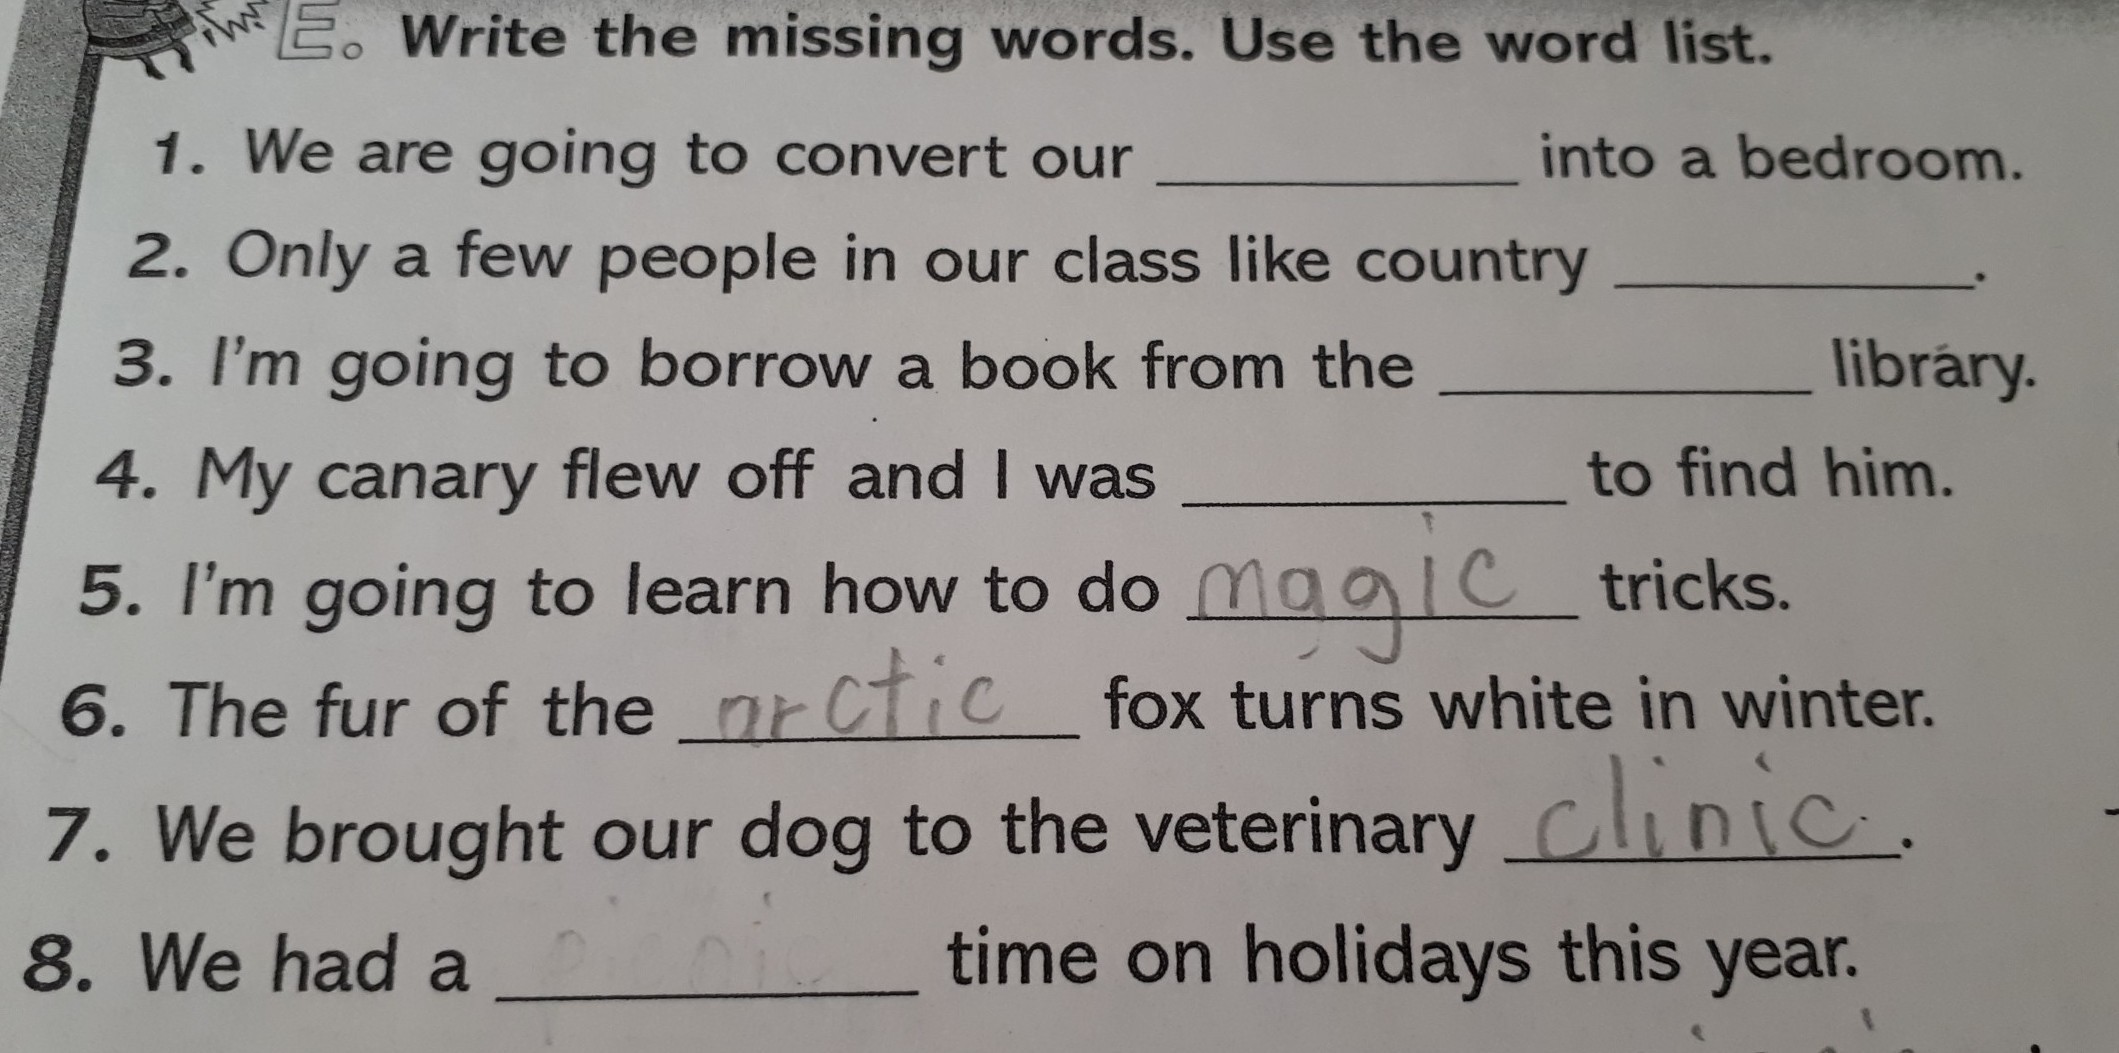 E. Write the missing words. Use the word list.
1. We are going to convert our ____________ into a bedroom.
2. Only a few people in our class like country ____________.
3. I'm going to borrow a book from the ____________ library.
4. My canary flew off and I was ____________ to find him.
5. I'm going to learn how to do magic tricks.
6. The fur of the arctic fox turns white in winter.
7. We brought our dog to the veterinary clinic.
8. We had a ____________ time on holidays this year.